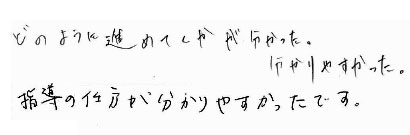 どのように進めてくかが分かった。
分かりやすかった。
指導の仕方が分かりやすかったです。